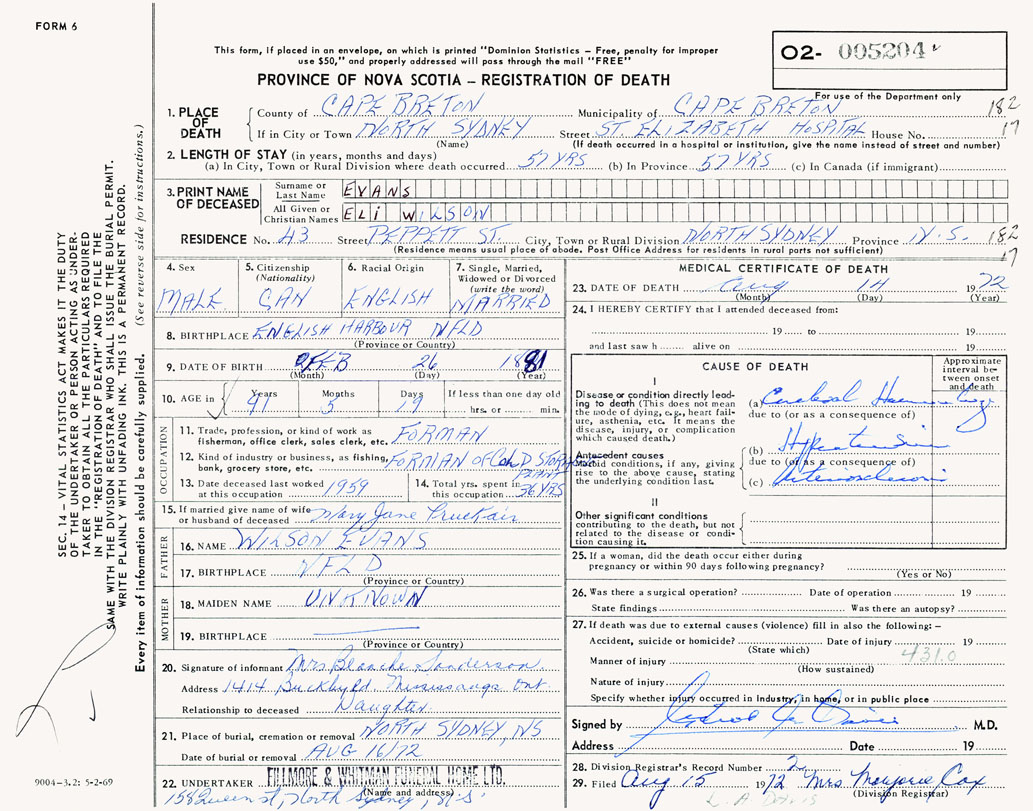 FORM 6
This form, if placed in an envelope, on which is printed "Dominion Statistics – Free, penalty for improper
use $50," and properly addressed will pass through the mail "FREE"
PROVINCE OF NOVA SCOTIA – REGISTRATION OF DEATH
O2- 005204
For use of the Department only
182
17
1. PLACE OF DEATH
County of CAPE BRETON Municipality of CAPE BRETON
If in City or Town NORTH SYDNEY Street ST. ELIZABETH HOSPITAL House No.
(Name) (If death occurred in a hospital or institution, give the name instead of street and number)
2. LENGTH OF STAY (in years, months and days)
(a) In City, Town or Rural Division where death occurred 57 YRS (b) In Province 57 YRS (c) In Canada (if immigrant)
3. PRINT NAME OF DECEASED
Surname or Last Name EVANS
All Given or Christian Names ELI WILSON
RESIDENCE No. 43 Street PEPPETT ST. City, Town or Rural Division NORTH SYDNEY Province N.S. 182
17
(Residence means usual place of abode. Post Office Address for residents in rural parts not sufficient)
4. Sex
MALE
5. Citizenship (Nationality)
CAN
6. Racial Origin
ENGLISH
7. Single, Married, Widowed or Divorced (write the word)
MARRIED
8. BIRTHPLACE ENGLISH HARBOUR NFLD
(Province or Country)
9. DATE OF BIRTH FEB 26 1881
(Month) (Day) (Year)
10. AGE in Years 91 Months 5 Days 19 If less than one day old
hrs. or min.
OCCUPATION
11. Trade, profession, or kind of work as fisherman, office clerk, sales clerk, etc. FORMAN
12. Kind of industry or business, as fishing, bank, grocery store, etc. FORMAN OF COLD STORAGE PLANT
13. Date deceased last worked at this occupation 1959
14. Total yrs. spent in this occupation 36 YRS
15. If married give name of wife or husband of deceased Mary Jane
FATHER
16. NAME WILSON EVANS
17. BIRTHPLACE NFLD
(Province or Country)
MOTHER
18. MAIDEN NAME UNKNOWN
19. BIRTHPLACE
(Province or Country)
20. Signature of informant Mrs Blanche Sanderson
Address 1414 Mississauga Ont
Relationship to deceased Daughter
21. Place of burial, cremation or removal NORTH SYDNEY, NS
Date of burial or removal AUG 16/72
22. UNDERTAKER FILLMORE & WHITMAN FUNERAL HOME LTD.
(Name and address)
158 Queen st, North Sydney, N S
MEDICAL CERTIFICATE OF DEATH
23. DATE OF DEATH Aug 14 1972
(Month) (Day) (Year)
24. I HEREBY CERTIFY that I attended deceased from:
19 to 19
and last saw h alive on 19
CAUSE OF DEATH
Approximate interval between onset and death
I
Disease or condition directly leading to death (This does not mean the mode of dying, e.g., heart failure, asthenia, etc. It means the disease, injury, or complication which caused death.)
(a) Cerebral Haemorrhage
due to (or as a consequence of)
Antecedent causes
Morbid conditions, if any, giving rise to the above cause, stating the underlying condition last.
(b) Hypertension
due to (or as a consequence of)
(c) Arteriosclerosis
II
Other significant conditions contributing to the death, but not related to the disease or condition causing it.
25. If a woman, did the death occur either during
pregnancy or within 90 days following pregnancy?
(Yes or No)
26. Was there a surgical operation? Date of operation 19
State findings Was there an autopsy?
27. If death was due to external causes (violence) fill in also the following: –
Accident, suicide or homicide? Date of injury 19
(State which)
431.0
Manner of injury
(How sustained)
Nature of injury
Specify whether injury occurred in industry, in home, or in public place
Signed by M.D.
Address Date 19
28. Division Registrar's Record Number 2
29. Filed Aug 15 1972 Mrs Marjorie Cox
(Division Registrar)
SEC. 14 – VITAL STATISTICS ACT MAKES IT THE DUTY
OF THE UNDERTAKER OR PERSON ACTING AS UNDER-
TAKER TO OBTAIN ALL THE PARTICULARS REQUIRED
IN THE "REGISTRATION OF DEATH" AND TO FILE THE
SAME WITH THE DIVISION REGISTRAR WHO SHALL ISSUE THE BURIAL PERMIT.
WRITE PLAINLY WITH UNFADING INK. THIS IS A PERMANENT RECORD.
Every item of information should be carefully supplied. (See reverse side for instructions.)
9004-3.2: 5-2-69